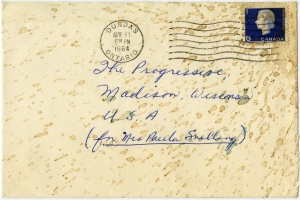 DUNDAS
APR 11
PM
1964
ONTARIO
5
CANADA
The Progressive,
Madison, Wisconsin
U. S. A
(for Mrs Paula